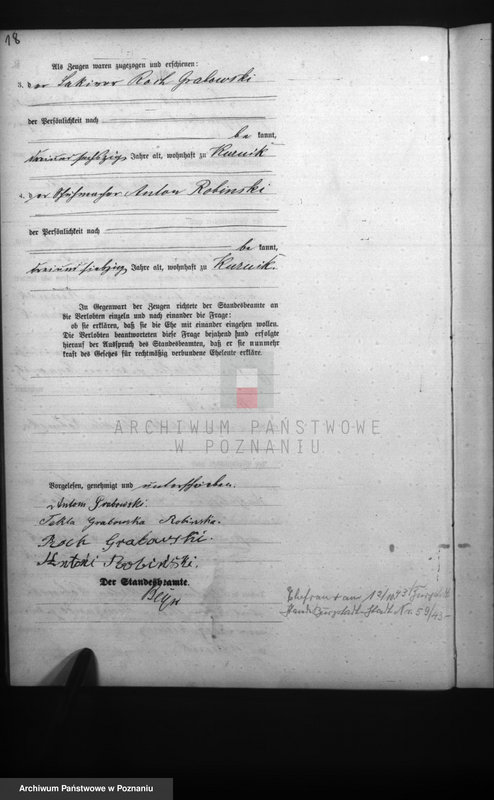 18
Als Zeugen waren zugezogen und erschienen:
3. der Lakirer Roch Grabowski
der Persönlichkeit nach
be kannt,
dreiundsechszig Jahre alt, wohnhaft zu Kurnik
4. der Schuhmacher Anton Robinski
der Persönlichkeit nach
be kannt,
dreiundsiebzig Jahre alt, wohnhaft zu Kurnik.
In Gegenwart der Zeugen richtete der Standesbeamte an
die Verlobten einzeln und nach einander die Frage:
ob sie erklären, daß sie die Ehe mit einander eingehen wollen.
Die Verlobten beantworteten diese Frage bejahend und erfolgte
hierauf der Ausspruch des Standesbeamten, daß er sie nunmehr
kraft des Gesetzes für rechtmäßig verbundene Eheleute erkläre.
ARCHIWUM PAŃSTWOWE
W POZNANIU
Vorgelesen, genehmigt und unterschrieben.
Antoni Grabowski.
Tekla Grabowska Robinska.
Roch Grabowski.
Antoni Robiński.
Der Standesbeamte.
Ehefrau + am 12/10.43
Nr. 59/43
Archiwum Państwowe w Poznaniu